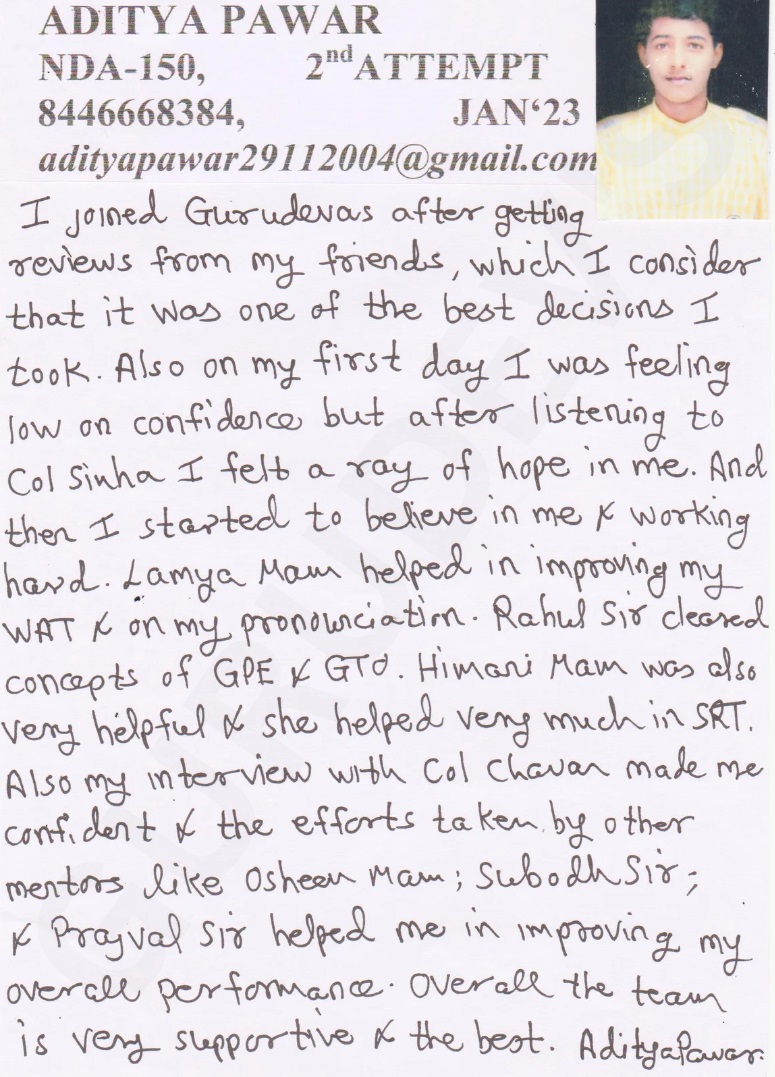 ADITYA PAWAR
NDA-150, 2nd ATTEMPT
8446668384, JAN‘23
adityapawar29112004@gmail.com
I joined Gurudevas after getting
reviews from my friends, which I consider
that it was one of the best decisions I
took. Also on my first day I was feeling
low on confidence but after listening to
Col Sinha I felt a ray of hope in me. And
then I started to believe in me & working
hard. Lamya Mam helped in improving my
WAT & on my pronounciation. Rahul Sir cleared
concepts of GPE & GTO. Himani Mam was also
very helpful & she helped very much in SRT.
Also my interview with Col Chavan made me
confident & the efforts taken by other
mentors like Osheen Mam; Subodh Sir;
& Prajval Sir helped me in improving my
overall performance. Overall the team
is very supportive & the best. Aditya Pawar.
GURUDEVAS